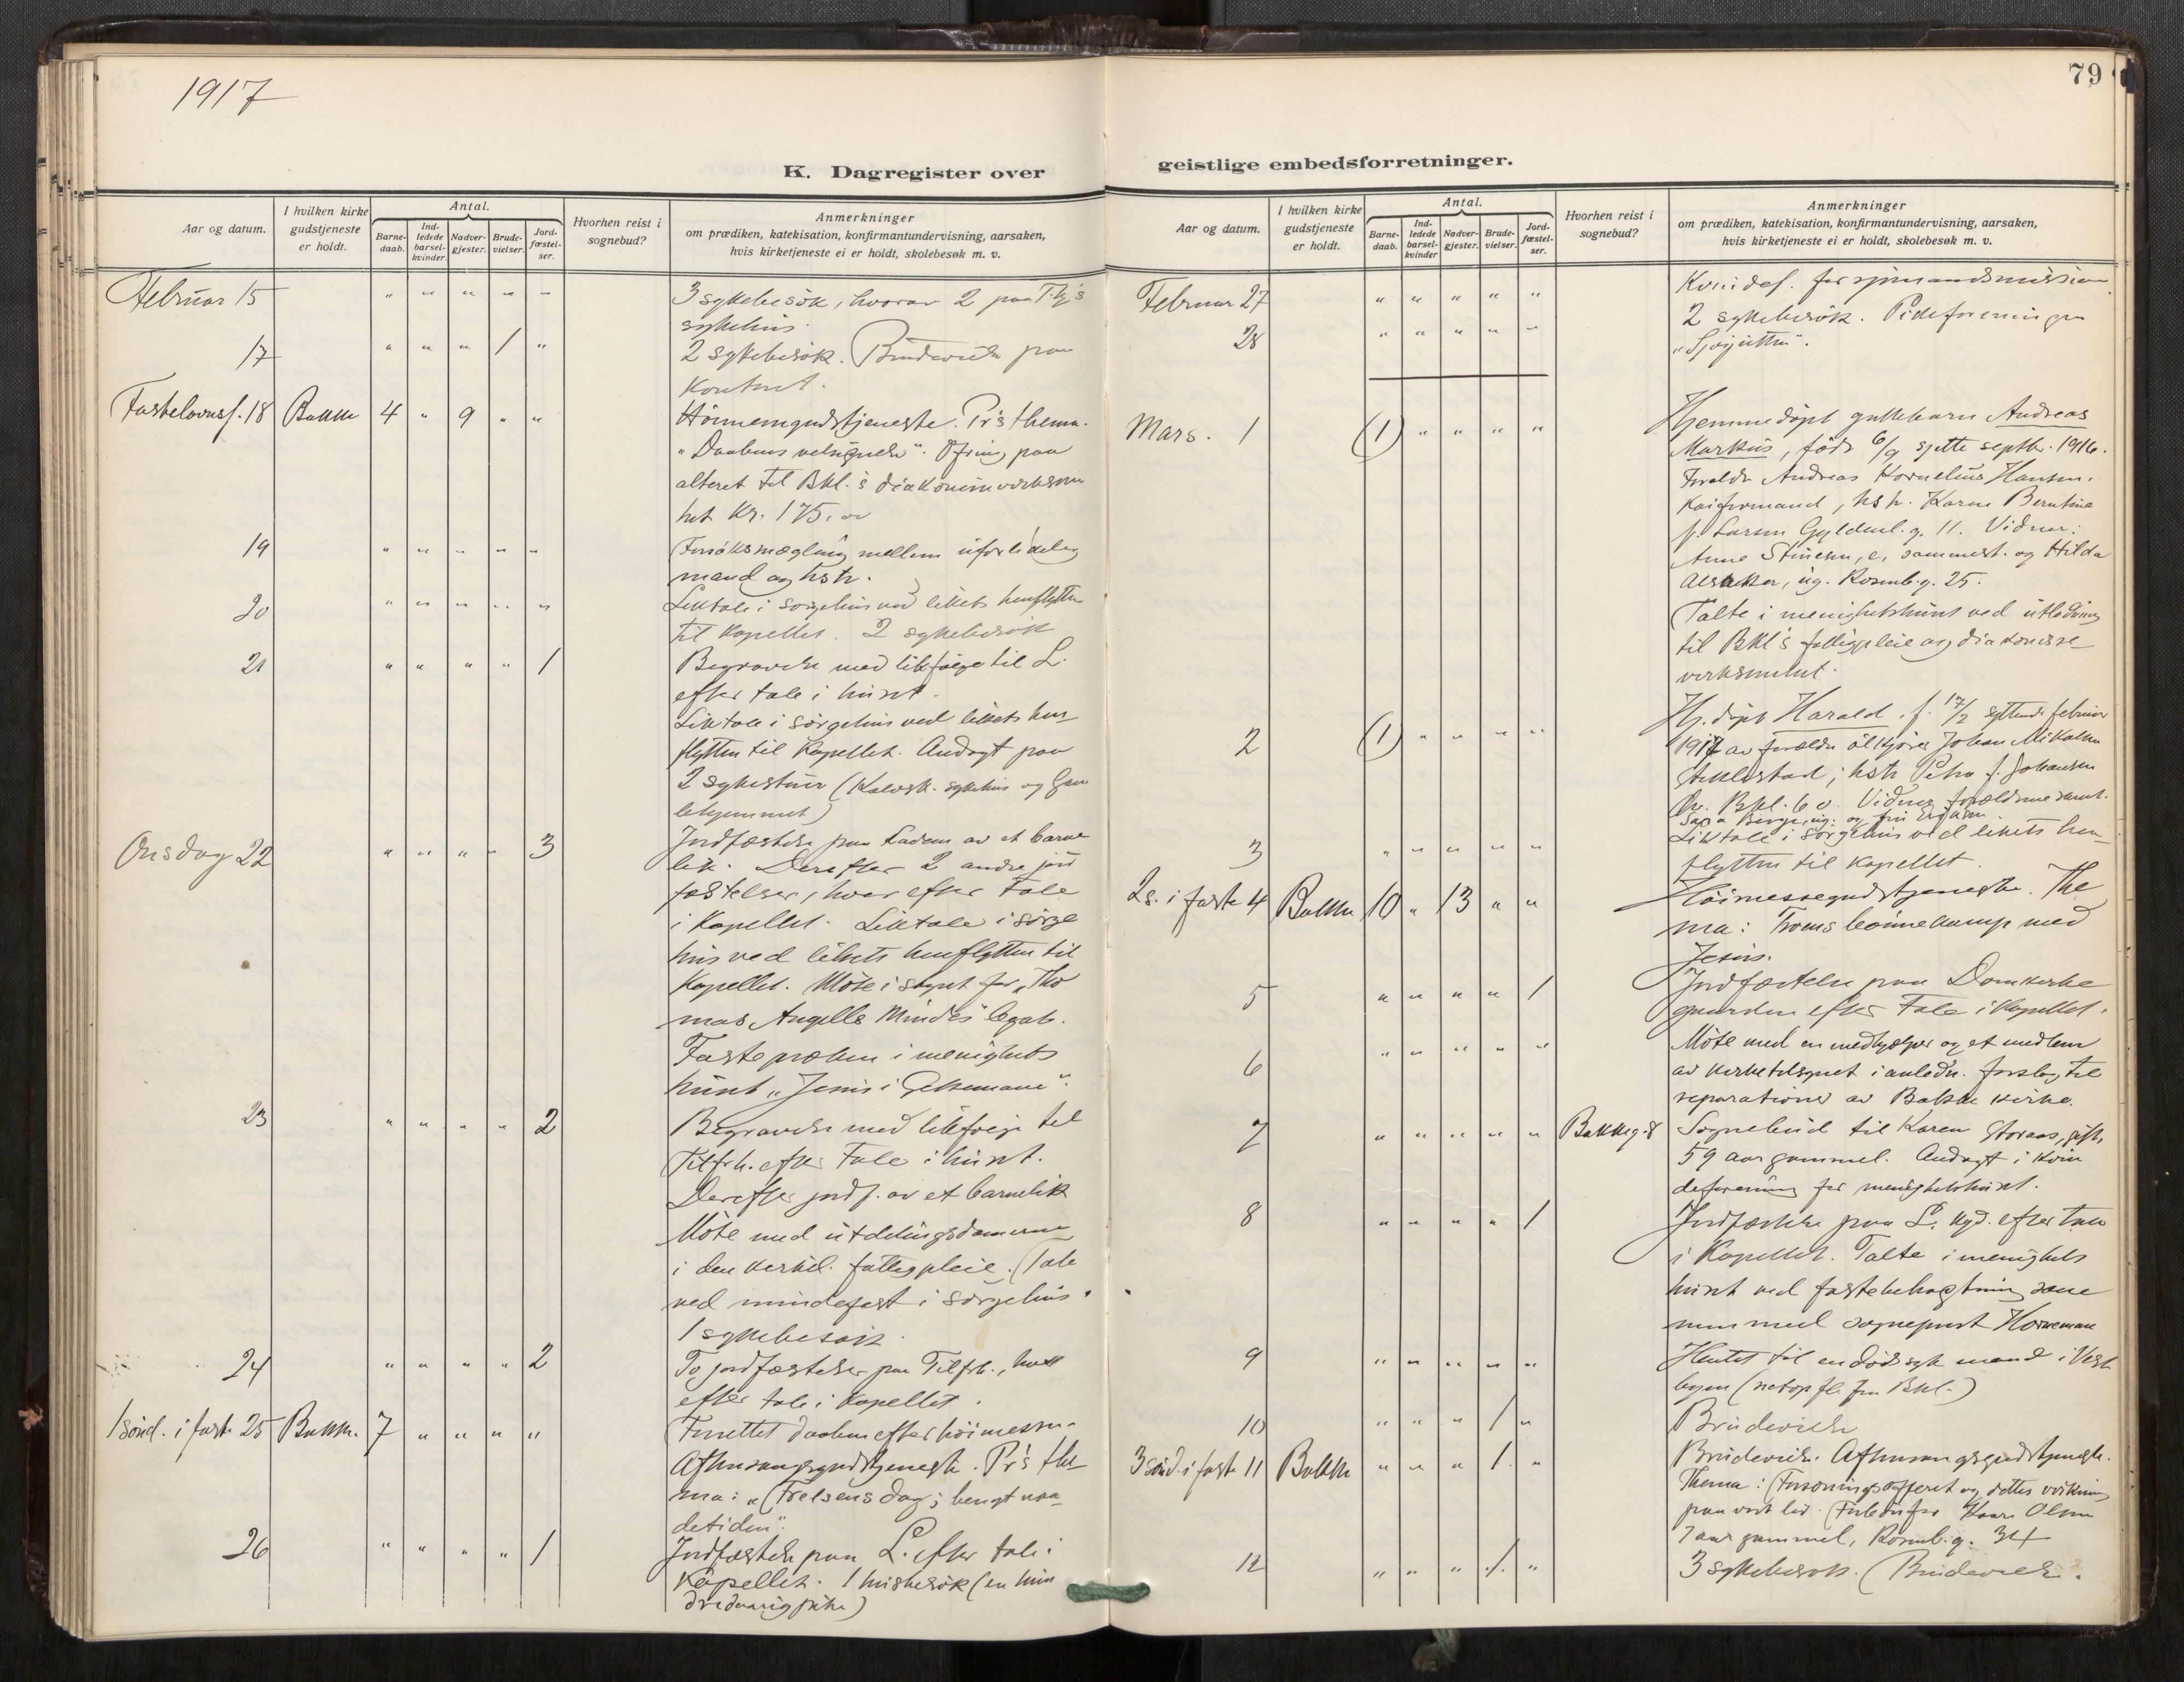 1917
79
K. Dagregister over geistlige embedsforretninger.
Aar og datum.
I hvilken kirke gudstjeneste er holdt.
Antal.
Barne-daab.
Ind-ledede barsel-kvinder.
Nadver-gjester.
Brude-vielser.
Jord-fæstel-ser.
Hvorhen reist i sognebud?
Anmerkninger
om prædiken, katekisation, konfirmantundervisning, aarsaken,
hvis kirketjeneste ei er holdt, skolebesøk m. v.
Februar 15 " " " " " 3 sykebesök, hvorav 2 paa T.hj's
sykehus.
17 " " " 1 " 2 sykebesök. Brudevielse paa
Kontoret.
Fastelavnss. 18 Bakke 4 " 9 " " gudstjeneste. Pr's thema.
"Daabens velsignelse". Ofring paa
alteret til Bkl.'s diakonissevirksom
het Kr. 175.00
19 " " " " " Forsöksmægling mellem uforlidelig
mand og hstr.
20 " " " " " Liktale i sorgehus ved likets henflytten
til Kapellet. 2 sykebesök
21 " " " " 1 Begravelse med likfölge til L.
efter tale i huset.
Liktale i sörgehus ved likets hen
flytten til Kapellet. Andagt paa
2 sykestuer (Kalvsk. sykehus og Gam
lehjemmet)
Onsdag 22 " " " " 3 Jordfæstelse paa Ladem. av et barne
lik. Derefter 2 andre jord
fæstelser, hver efter tale
i Kapellet. Liktale i sörge
hus ved likets henflytten til
Kapellet. Möte i styret for "Tho
mas Angells Minde's" legat.
Fasteprækn i menighets
huset "Jesus i Getsemane".
23 " " " " 2 Begravelse med likfölge til
Tilfrh. efter tale i huset.
Derefter jordf. av et barnelik
Möte med utdelingsdamerne
i den kirkel. fattigpleie. Tale
ved mindefest i sörgehus.
1 sykebesök.
24 " " " " 2 To jordfæstelser paa Tilfrh., hver
efter tale i Kapellet.
1 sönd. i faste 25 Bakke. 7 " " " " Forrettet daaben efter höimessen.
Aftensangsgudstjeneste. Pr's the
ma: "Frelsens dag; benyt naa
detiden".
26 " " " " 1 Jordfæstelse paa L. efter tale i
Kapellet. 1 husbesök (en hun
dredaarig pike)
Aar og datum.
I hvilken kirke gudstjeneste er holdt.
Antal.
Barne-daab.
Ind-ledede barsel-kvinder
Nadver-gjester.
Brude-vielser.
Jord-fæstel-ser.
Hvorhen reist i sognebud?
Anmerkninger
om prædiken, katekisation, konfirmantundervisning, aarsaken,
hvis kirketjeneste ei er holdt, skolebesøk m. v.
Februar 27 " " " " " Kvindef. for sjömandsmission
28 " " " " " 2 sykebesök. Pikeforeningen
Mars. 1 (1) " " " " Hjemmedöpt guttebarn Andreas
Markus, född 6/9 sjette septbr. 1916.
Foreldr. Andreas Kornelius Hansen,
Kaiformand, hstr. Karen Berntine
f. Larsen Gyldenl. g. 11. Vidner:
Anne Stinesen, e, sammest. og Hilda
Alsaker, ug. Rosenb. g. 25.
Talte i menighetshuset ved utlodning
til Bkl's fattigpleie og diakonisse
virksomhet.
2 (1) " " " " Hj. döpt Harald, f. 17/2 syttende februar
1917 av forældre ölkjörer Johan Mikalsen
hstr Petra f. Johansen
Ö. Bkl. 6 v. Vidner forældrene samt.
Berge, ug. og fru
3 " " " " " Liktale i sörgehus ved likets hen-
flytten til Kapellet.
2 s. i faste 4 Bakke 10 " 13 " " Höimessegudstjeneste. The
ma: Troens bönnekamp med
Jesus.
5 " " " " 1 Jordfæstelse paa Domkirke
gaarden efter tale i Kapellet.
6 " " " " " Möte med en medhjælper og et medlem
av kirketilsynet i anledn. forslag til
reparationer av Bakke kirke.
7 " " " " " Bakkeg. 8 Sognebud til Karen Storaas, gift,
59 aar gammel. Andagt i kvin
deforening for menighetshuset.
8 " " " " 1 Jordfæstelse paa L. kgd. efter tale
i Kapellet. Talte i menighets
huset ved fastebetragtning samme
men med sogneprest Horneman
9 " " " " " Hentet til en dödssyk mand i Vest
byen (netop fl. fra Bkl.)
10 " " " 1 " Brudevielse
3 sönd. i faste 11 Bakke " " " 1 " Brudevielse. Aftensangsgudstjeneste.
Thema: Forsoningsofferet og dettes virkning
paa vort liv. Kaare Olsen
7 aar gammel, Rosenb. g. 34
12 " " " 1 " 3 sykebesök. Brudevielse.